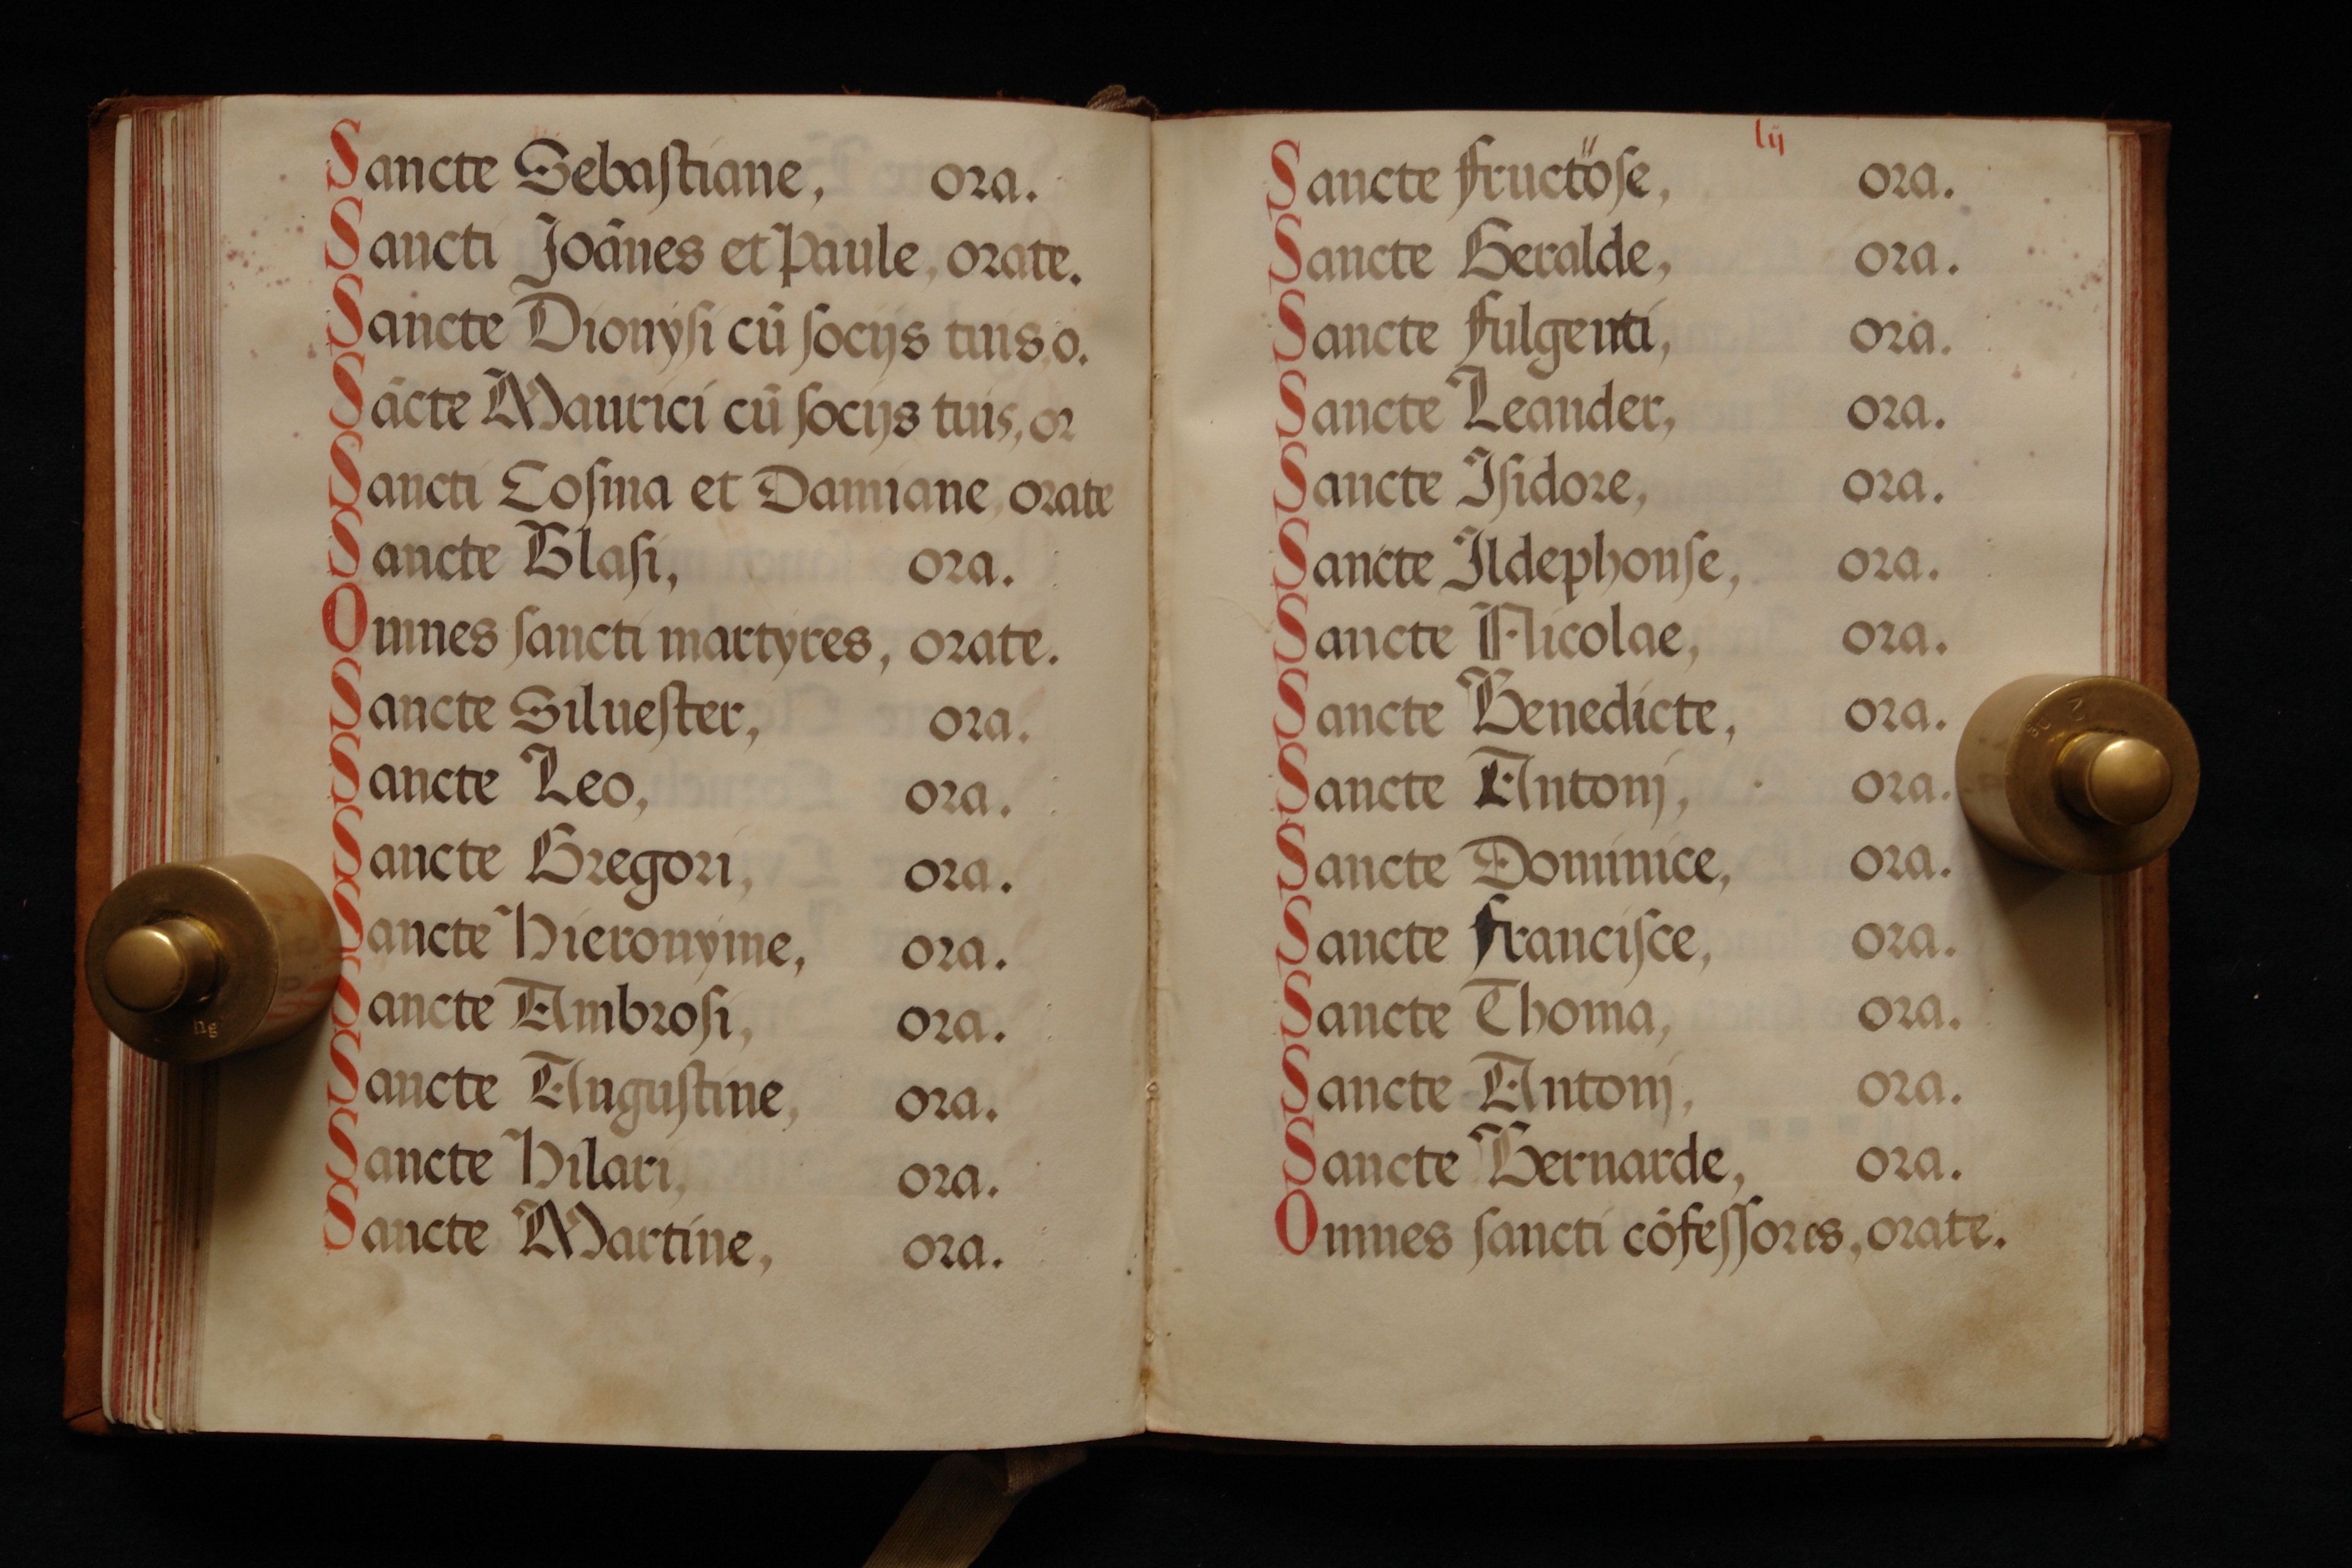 Sancte Sebaſtiane, ora.
Sancti Joānes et Paule, orate.
Sancte Dionyſi cū ſocijs tuis, o.
Sācte Maurici cū ſocijs tuis, or
Sancti Coſma et Damiane, orate
Sancte Blaſi, ora.
Omnes ſancti martyres, orate.
Sancte Silueſter, ora.
Sancte Leo, ora.
Sancte Gregori, ora.
Sancte Hieronyme, ora.
Sancte Ambroſi, ora.
Sancte Auguſtine, ora.
Sancte Hilari, ora.
Sancte Martine, ora.
lij
Sancte Fructöſe, ora.
Sancte Geralde, ora.
Sancte Fulgenti, ora.
Sancte Leander, ora.
Sancte Iſidore, ora.
Sancte Ildephonſe, ora.
Sancte Nicolae, ora.
Sancte Benedicte, ora.
Sancte Antonj, ora.
Sancte Dominice, ora.
Sancte Franciſce, ora.
Sancte Thoma, ora.
Sancte Antonj, ora.
Sancte Bernarde, ora.
Omnes ſancti cōfeſſores, orate.